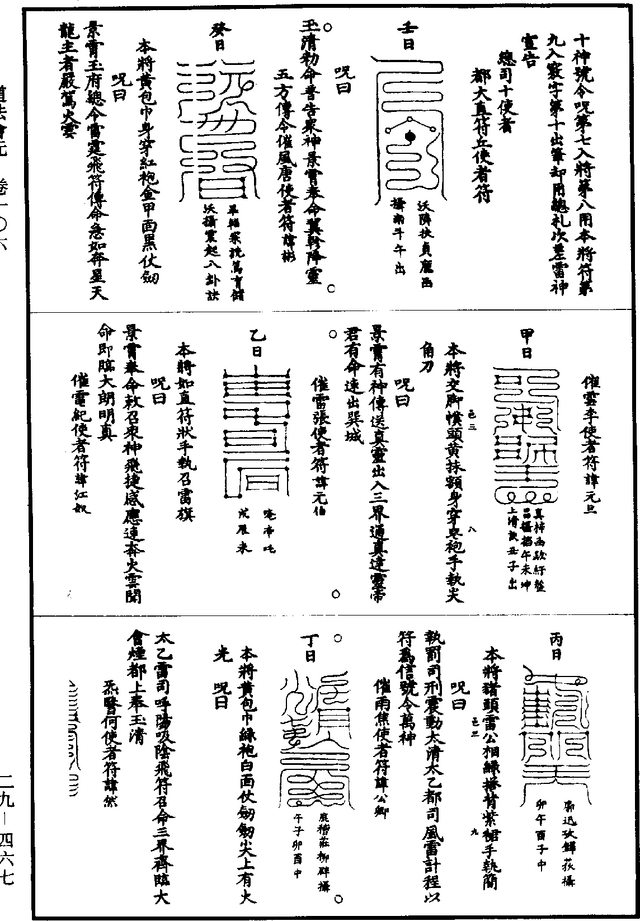 十神號令呪第七入將第八用本將符第
九入竅字第十出筆却用總札次差雷神
宣告
總司十使者
都大直符丘使者符
壬日
沃降扶貞
攝雨斗午出
呪曰
玉清勑命普告衆神景霄奉命翼軫降靈
五方傳令催風唐使者符諱彬
癸日
沃攝震起八卦訣
本將黃包巾身穿紅袍金甲面黑仗劒
呪曰
景霄玉府總令雷霆飛符傳命急如奔星天
龍主者嚴駕火雲
催雲李使者符諱元旦
甲日
上清訣丑子出
本將交脚幞頭黃抹額身穿皂袍手執尖
角刀
色三
八
呪曰
景霄有神傳送真靈出入三界通真達靈帝
君有命速出巽城
催雷張使者符諱元伯
乙日
唵沛吒
戌辰來
本將如直符狀手執召雷旗
呪曰
景霄奉命敕召衆神飛捷感應速奔火雲聞
命即臨大朗明真
催電紀使者符諱江奴
丙日
卯午酉子中
本將猪頭雷公相綠播背紫裙手執簡
色三
九
呪曰
執罰司刑震動太清太乙都司風雷計程以
符爲信號令萬神
催雨焦使者符諱公卿
丁日
午子卯酉中
本將黃包巾綠袍白面仗劒劒尖上有火
光 呪曰
太乙雷司呼陽吸陰飛符召命三界齊臨大
會煙都上奉玉清
炁醫何使者符諱然
道法會元 卷一〇六
二九—四六七